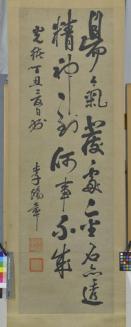 陽氣發處金石亦透
精神一到何事不成
光緒丁丑三夏日
李鴻章